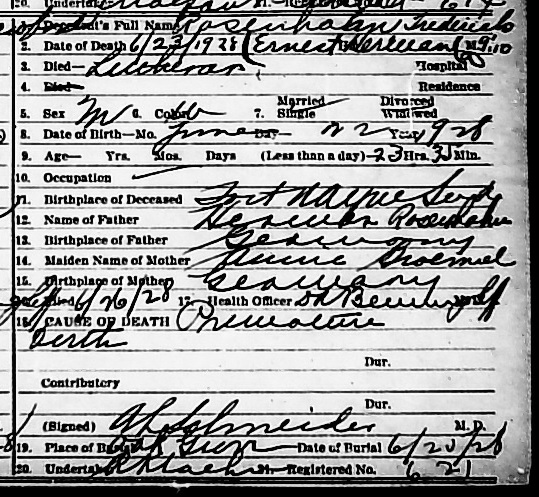 20. Undertaker 21. Registered No. 614
1. Decedent's Full Name Rosenhahn Frederick
2. Date of Death 6/23/1928 (Ernest Herman) M.
3. Died— Lutheran Hospital
4. Died— Residence
5. Sex M 6. Color W 7. Married Single Divorced Widowed
8. Date of Birth—Mo. June Day 22 Year 1928
9. Age— Yrs. Mos. Days (Less than a day) 23 Hrs. 35 Min.
10. Occupation
11. Birthplace of Deceased Fort Wayne Ind
12. Name of Father Herman Rosenhahn
13. Birthplace of Father Germany
14. Maiden Name of Mother
15. Birthplace of Mother Germany
Filed 6/26/28 17. Health Officer Dr
18. CAUSE OF DEATH Premature
Birth
Dur.
Contributory
Dur.
(Signed) Schneider M. D.
19. Place of Burial Date of Burial 6/25/28
20. Undertaker 21. Registered No. 621